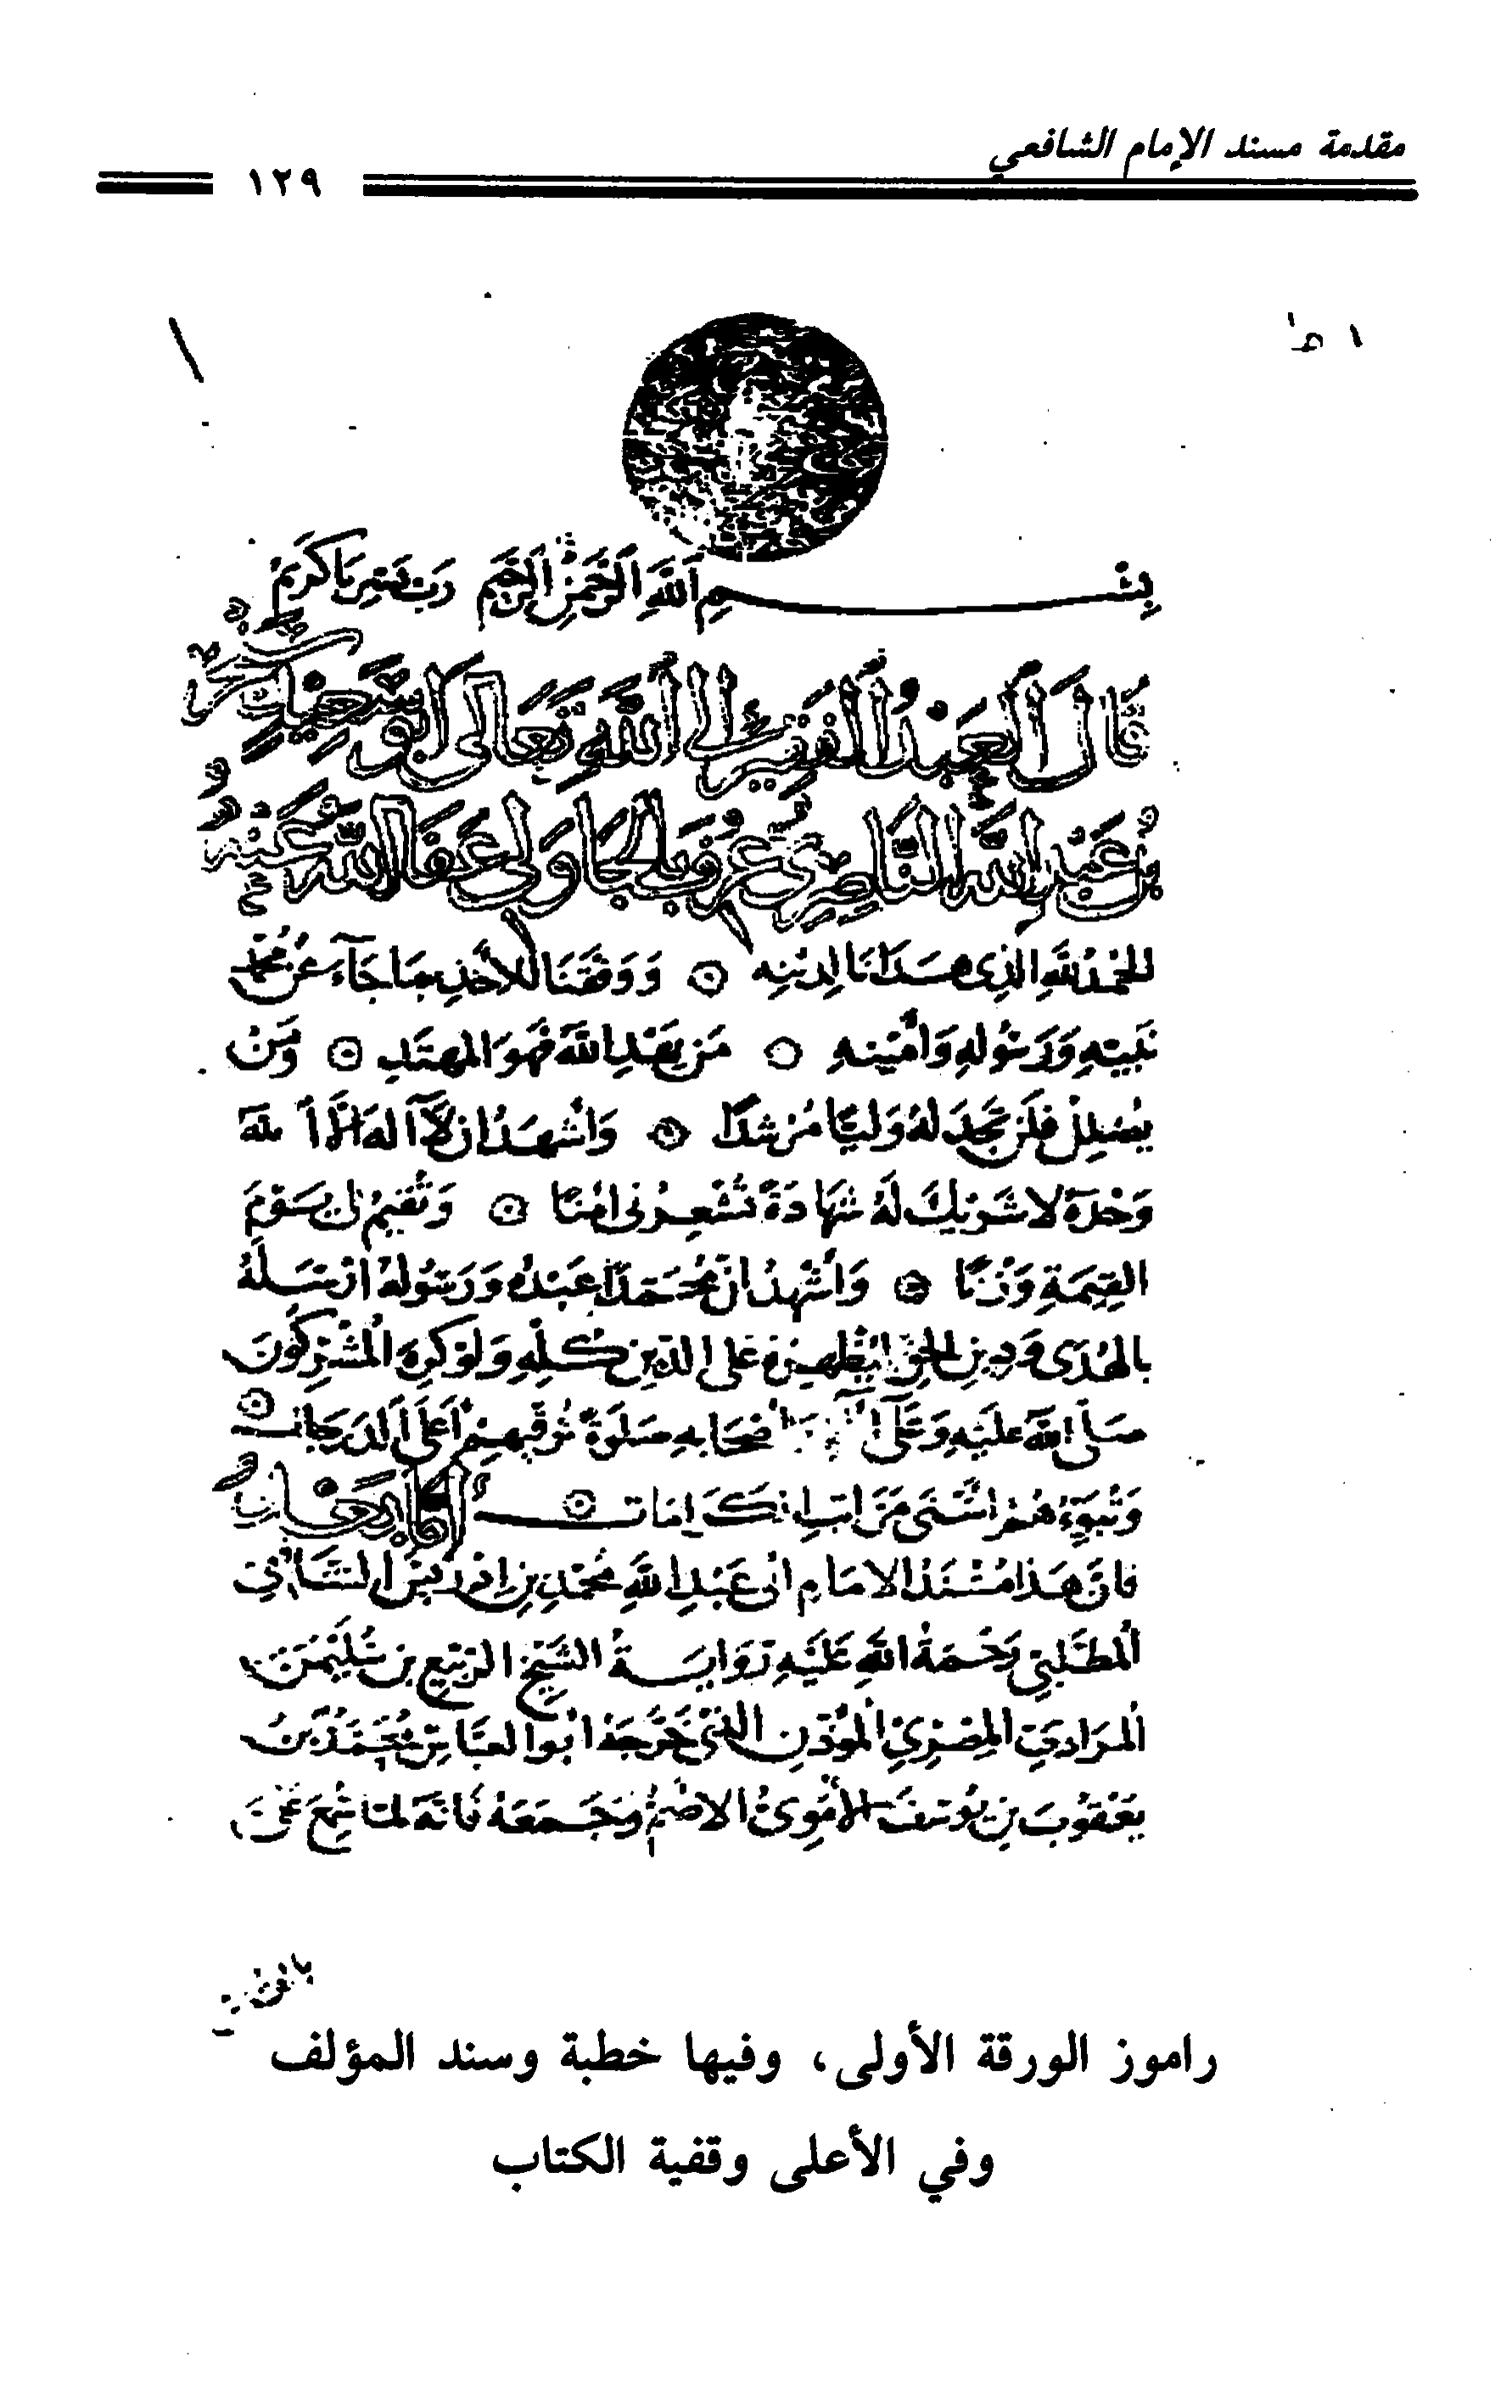 مقدمة مسند الإمام الشافعي
١٢٩
بِسْمِ اللَّهِ الرَّحْمَنِ الرَّحِيمِ رَبِّ يَسِّرْ يَا كَرِيمُ
قَالَ الْعَبْدُ الْفَقِيرُ إِلَى اللَّهِ تَعَالَى أَبُو سَعِيدٍ سَنْجَرُ
بْنُ عَبْدِ اللَّهِ النَّاصِرِيُّ عُرِفَ بِالْجَاوَلِي عَفَا اللَّهُ عَنْهُ
الحَمْدُ للَّهِ الَّذِي هَدَانَا لِدِينِهِ وَوَفَّقَنَا للأَخْذِ بِمَا جَآءَ عَنْ مُحَمَّدٍ
نَبِيِّهِ وَرَسُولِهِ وَأَمِينِهِ مَن يَهْدِ اللَّهُ فَهُوَ المهتَدِ وَمَنْ
يُضْلِلْ فَلَن تَجِدَ لَهُ وَلِيًّا مُرْشِدًا وَأَشْهَدُ ان لآ اله الَّا الله
وَحْدَهُ لا شَرِيكَ لَهُ شَهَادَةً تُشْعِرُنى امْنًا وَتُقِيمُ لى يَوْمَ
القِيمَةِ وَزْنًا وَأَشْهَدُ انَّ مُحَمَّدًا عَبْدُهُ وَرَسُولُهُ ارْسَلَهُ
بِالهُدَى وَدِينِ الحَقِّ لِيُظْهِرَهُ عَلى الدِّينِ كُلِّهِ وَلَوْ كَرِهَ المُشْرِكُونَ
صَلَّى اللَّهُ عَلَيْهِ وَعَلَى اصْحَابِهِ صَلَوةً تُرَقِّيهِمْ اَعْلَى الدَّرَجَاتِ
وَتُبَوِّءُهُمْ اسْنَى مَرَاتِبِ الكَرَامَات أَمَّا بَعْدُ
فَانَّ هَذَا مُسْنَدُ الامَامِ ابى عَبْدِ اللَّهِ مُحَمَّدِ بنِ ادْرِيسَ الشَّافِعِي
المُطَّلِبِيِّ رَحْمَةُ اللَّهِ عَلَيْهِ رِوَايَةُ الشَّيْخِ الرَّبِيعِ بنِ سُلَيْمَن
المُرَادِيِّ المِصْرِيِّ المُؤَذِّنِ الذى خَرَّجَهُ ابُو العَبَّاسِ مُحَمَّدُ بنُ
يَعْقُوبَ بنِ يُوسُفَ الأُمَوِىُّ الاصَمُّ وَجَمَعَهُ فَانَّهُ لمَّا سُمِعَ عَنْ
راموز الورقة الأولى، وفيها خطبة وسند المؤلف
وفي الأعلى وقفية الكتاب